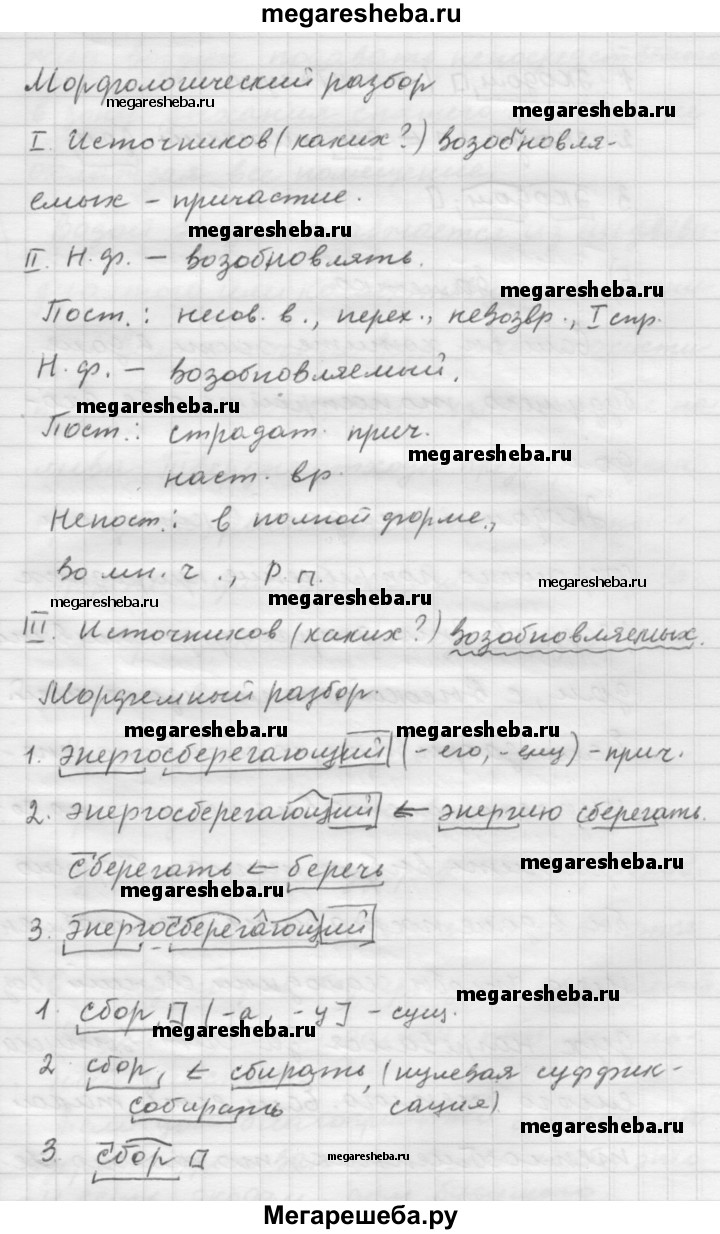 megaresheba.ru
Морфологический разбор
megaresheba.ru
megaresheba.ru
I. Источников (каких?) возобновля-
емых - причастие.
megaresheba.ru
II. Н.ф. — возобновлять.
megaresheba.ru
Пост.: несов. в., перех., невозвр., I спр.
Н.ф. — возобновляемый.
megaresheba.ru
Пост.: страдат. прич.
megaresheba.ru
наст. вр.
Непост.: в полной форме.,
во мн. ч., Р.п.
megaresheba.ru
megaresheba.ru
megaresheba.ru
III. Источников (каких?) возобновляемых.
Морфемный разбор.
megaresheba.ru
megaresheba.ru
1. энергосберегающий (-его, -ему) - прич.
2. энергосберегающий ← энергию сберегать.
сберегать ← беречь
megaresheba.ru
megaresheba.ru
3. энергосберегающий
megaresheba.ru
1. сбор, [-а, -у] - сущ.
megaresheba.ru
2 сбор, ← сбирать, (нулевая суффик-
собирать сация)
megaresheba.ru
3. сбор
megaresheba.ru
Мегарешеба.ру